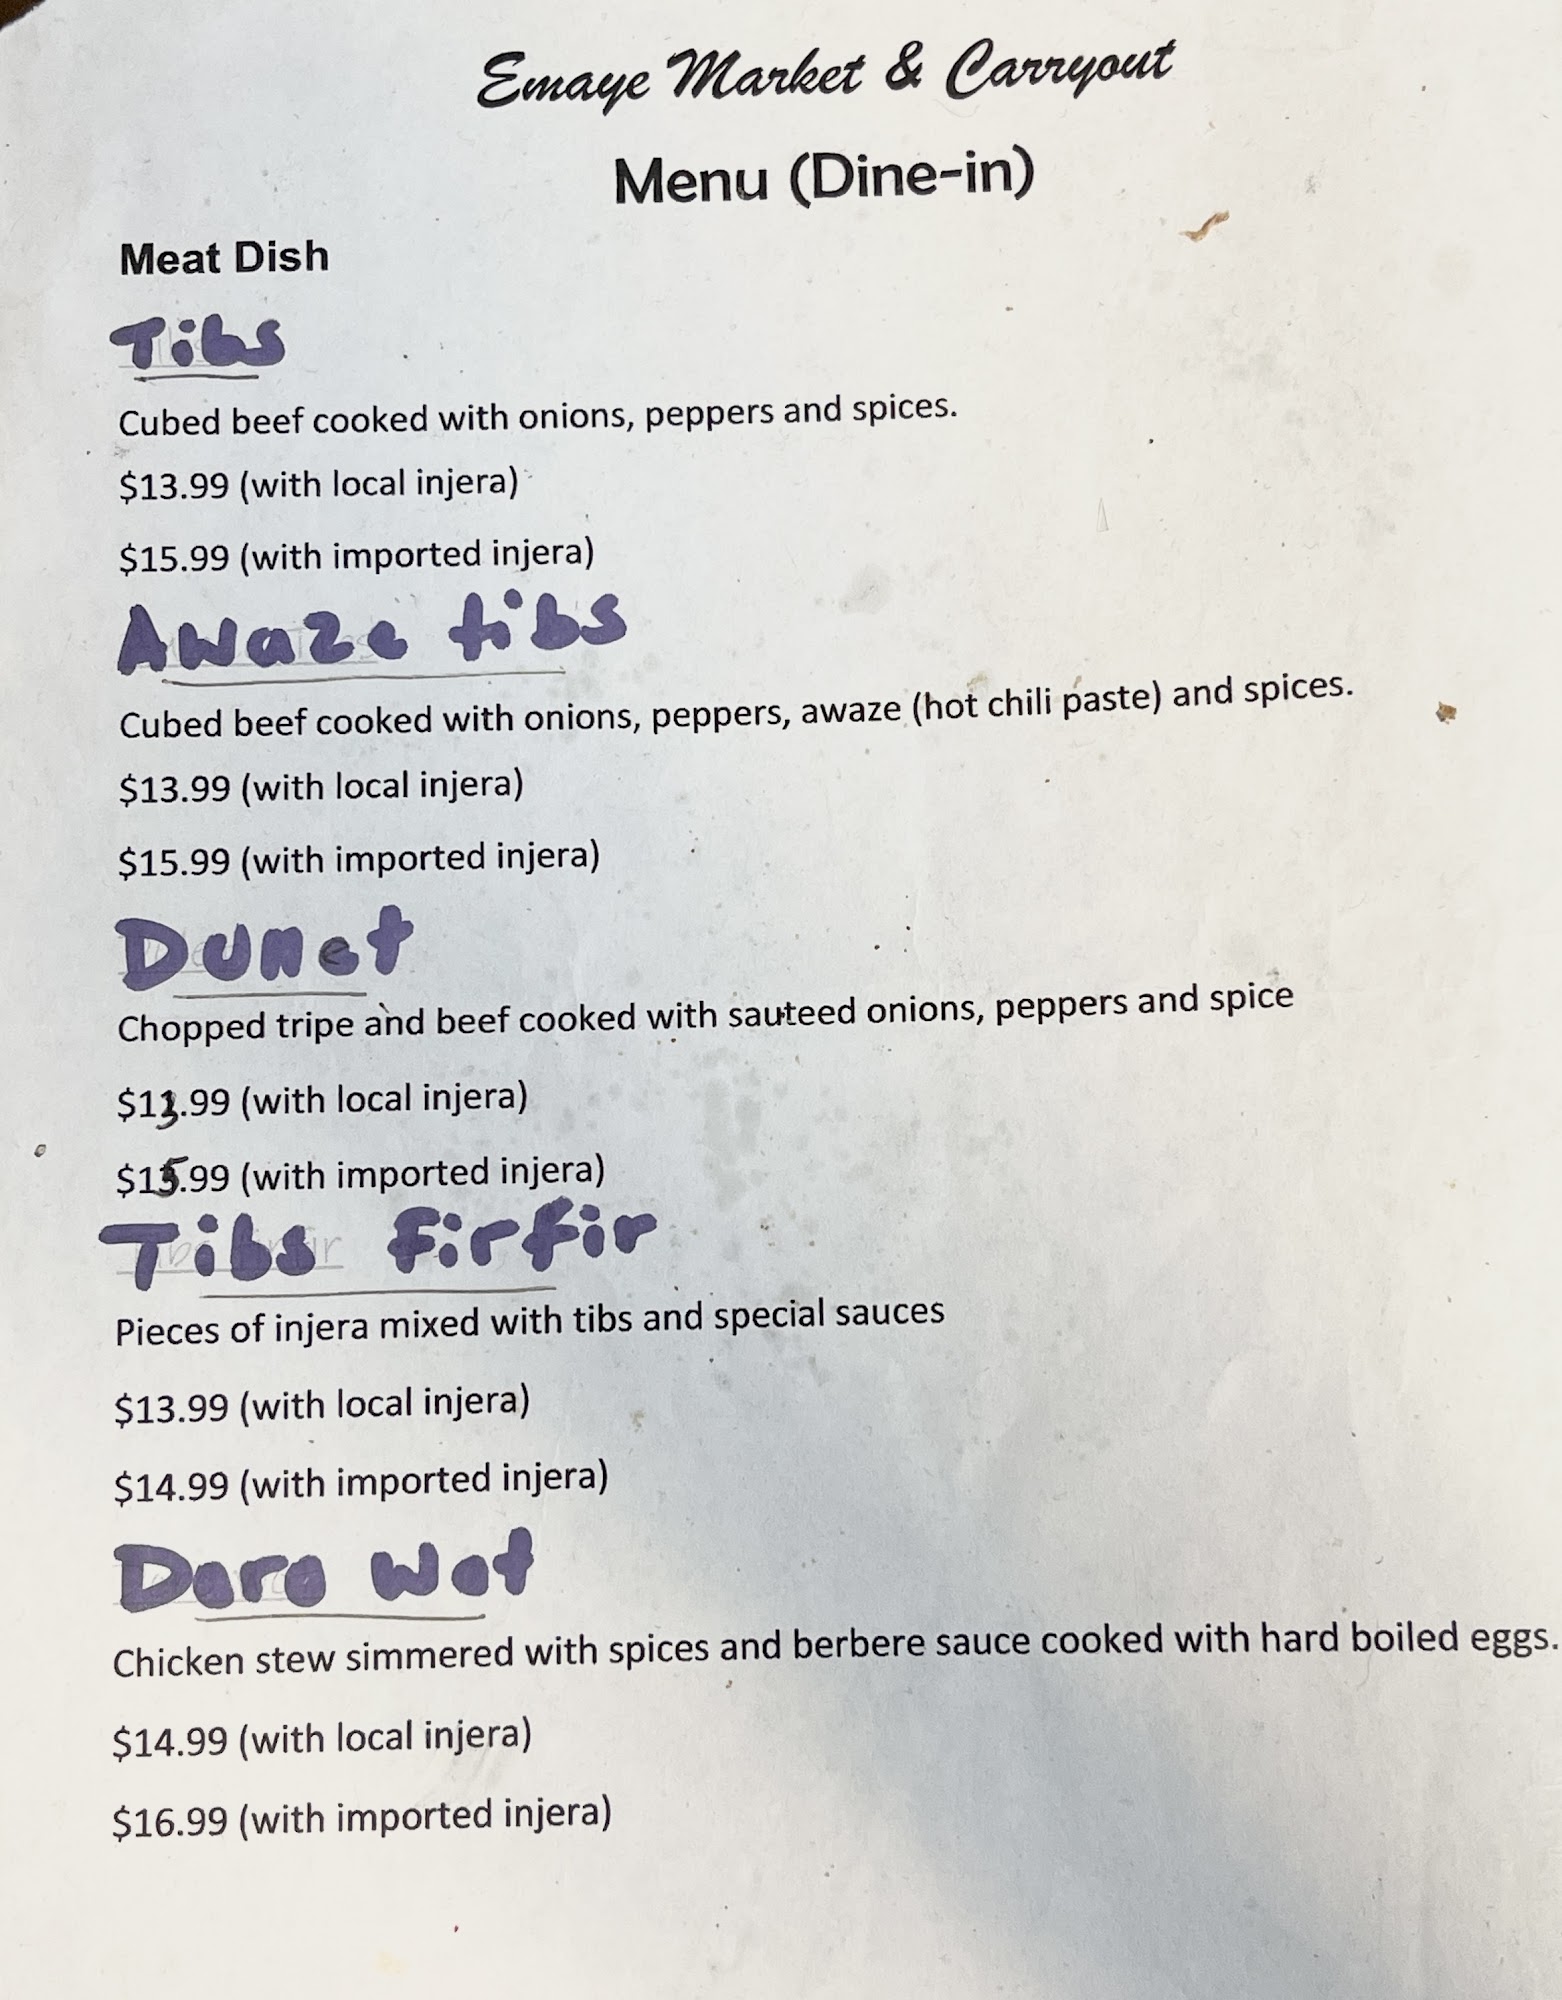 Emaye Market & Carryout
Menu (Dine-in)
Meat Dish
Tibs
Cubed beef cooked with onions, peppers and spices.
$13.99 (with local injera)
$15.99 (with imported injera)
Awaze tibs
Cubed beef cooked with onions, peppers, awaze (hot chili paste) and spices.
$13.99 (with local injera)
$15.99 (with imported injera)
Dunet
Chopped tripe and beef cooked with sauteed onions, peppers and spice
$13.99 (with local injera)
$15.99 (with imported injera)
Tibs firfir
Pieces of injera mixed with tibs and special sauces
$13.99 (with local injera)
$14.99 (with imported injera)
Doro wot
Chicken stew simmered with spices and berbere sauce cooked with hard boiled eggs.
$14.99 (with local injera)
$16.99 (with imported injera)